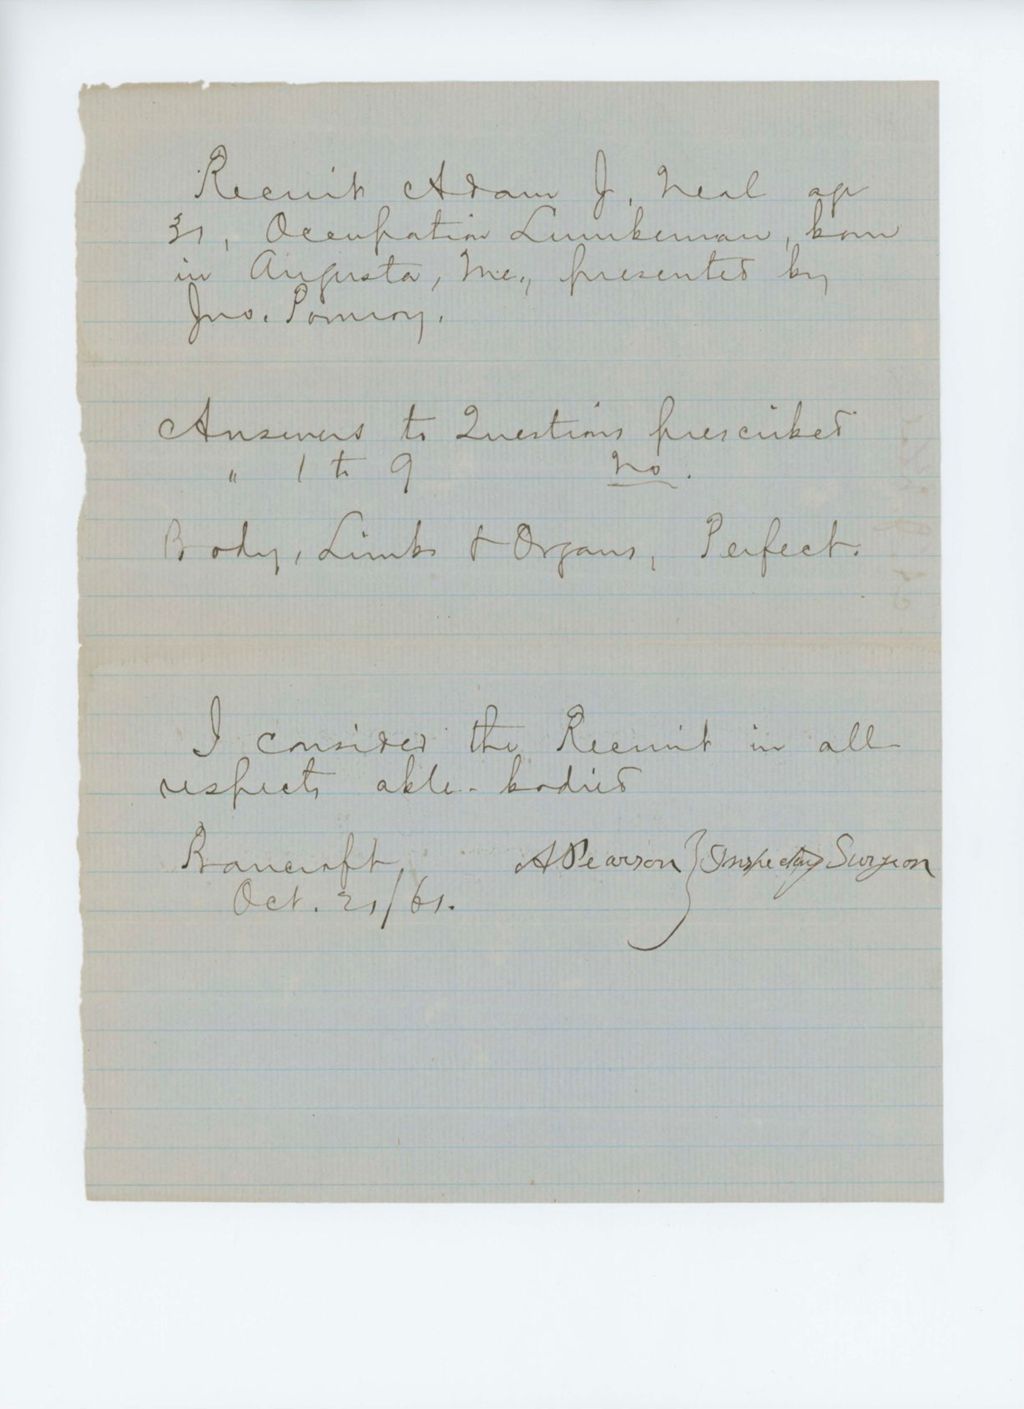 Recruit Adam J. Neal age
31, Occupation Lumberman, born
in Augusta, Me., presented by
Jno. Pomroy.
Answers to Questions prescribed
" 1 to 9 No.
Body, Limbs & Organs, Perfect.
I consider the Recruit in all
respects able-bodied
Bancroft, A Pearson } Inspecting Surgeon
Oct. 21/61.